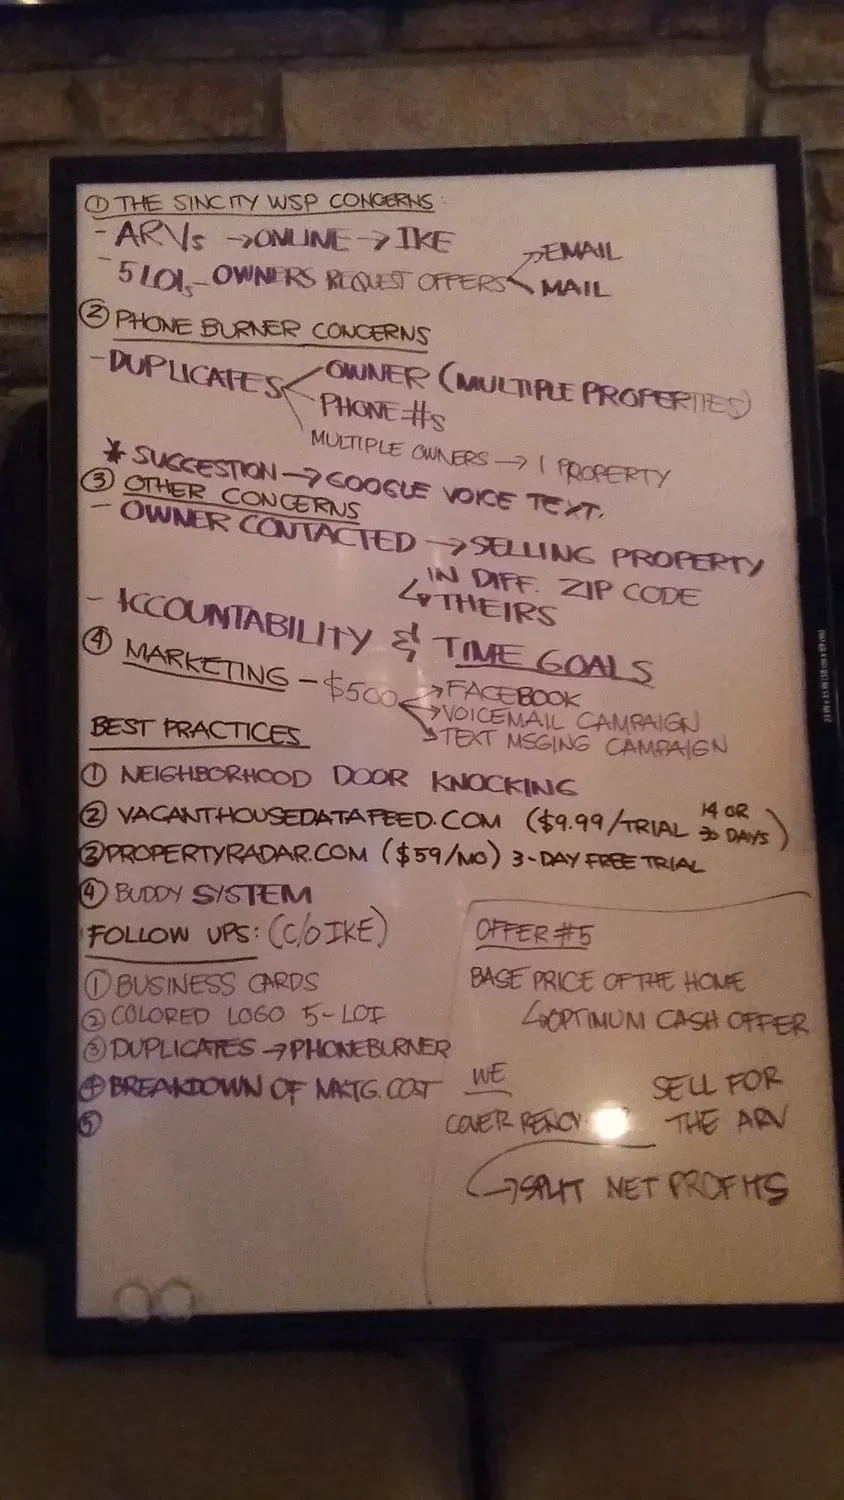 ① THE SINCITY WSP CONCERNS:
- ARVs → ONLINE → IKE
- 5 LOIs - OWNERS REQUEST OFFERS → EMAIL
→ MAIL
② PHONE BURNER CONCERNS
- DUPLICATES OWNER (MULTIPLE PROPERTIES)
PHONE #s
MULTIPLE OWNERS → 1 PROPERTY
* SUGGESTION → GOOGLE VOICE TEXT.
③ OTHER CONCERNS
- OWNER CONTACTED → SELLING PROPERTY
IN DIFF. ZIP CODE
↳ THEIRS
- ACCOUNTABILITY & TIME GOALS
④ MARKETING - $500 → FACEBOOK
→ VOICEMAIL CAMPAIGN
→ TEXT MSGING CAMPAIGN
BEST PRACTICES
① NEIGHBORHOOD DOOR KNOCKING
② VACANTHOUSEDATAFEED.COM ($9.99/TRIAL 14 OR 30 DAYS)
③ PROPERTYRADAR.COM ($59/MO) 3-DAY FREE TRIAL
④ BUDDY SYSTEM
FOLLOW UPS: (C/O IKE)
① BUSINESS CARDS
② COLORED LOGO 5-LOI
③ DUPLICATES → PHONEBURNER
④ BREAKDOWN OF MKTG. COST
⑤
OFFER #5
BASE PRICE OF THE HOME
↳ OPTIMUM CASH OFFER
WE SELL FOR
COVER THE ARV
→ SPLIT NET PROFITS